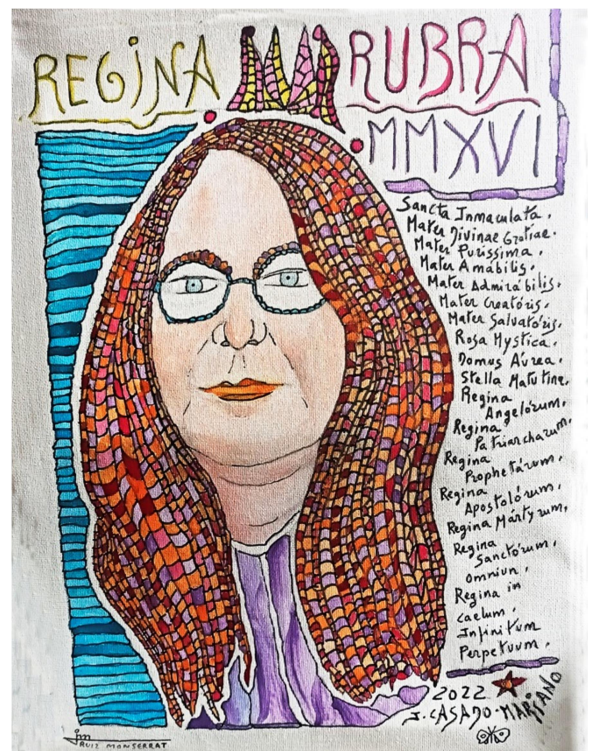 REGINA RUBRA
MMXVI
Sancta Inmaculata,
Mater Divinae Gratiae.
Mater Purissima,
Mater Amábilis,
Mater Admirábilis,
Mater Creatóris,
Mater Salvatóris,
Rosa Mystica,
Domus Áurea,
Stella Matutine,
Regina
Angelórum,
Regina
Patriarcharum,
Regina
Prophetárum,
Regina
Apostolórum,
Regina Mártyrum,
Regina
Sanctórum,
omniun,
Regina in
caelum,
Infinitum
Perpetuum,
2022
J. CASADO-MARIANO
jm
RUIZ MONSERRAT